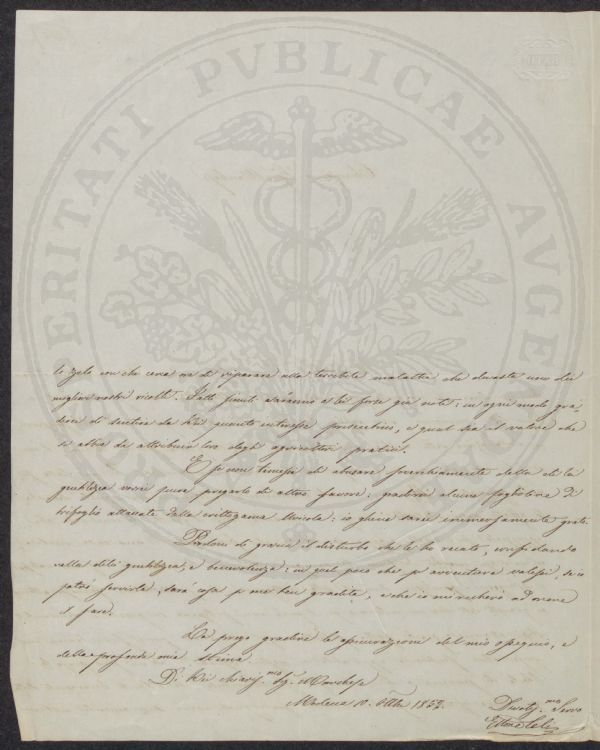 PROSPERITATI PVBLICAE AVGENDAE
lo zelo con che cerca ora di riparare alla terribile malattia che devasta uno dei
migliori nostri ricolti. Fatti simili saranno a lei forse già noti: in ogni modo gra-
direi di sentire da Lei quanto interesse possi, e qual sia il valore che
si abbia da attribuir loro dagli agricoltori pratici.
E se non temessi di abusare della di lei
gentilezza vorrei pure pregarlo di altro favore: gradirei alcune foglioline di
trifoglio attaccate dalla crittogama: io gliene sarei immensamente grato.
Perdoni di grazia il disturbo che le ho recato, confidando
nella di lei gentilezza, e benevolenza: in quel poco che p. avventura valessi, se io
potrò servirla, sarà cosa p. me ben gradita, e che io mi recherò ad onore
il fare.
La prego gradire le assicurazioni del mio ossequio, e
della profonda mia stima
Di Lei Chiariss.mo Sig. Marchese
Modena 10. Ottbre 1852.
Devotiss.mo Servo
Ettore Celi